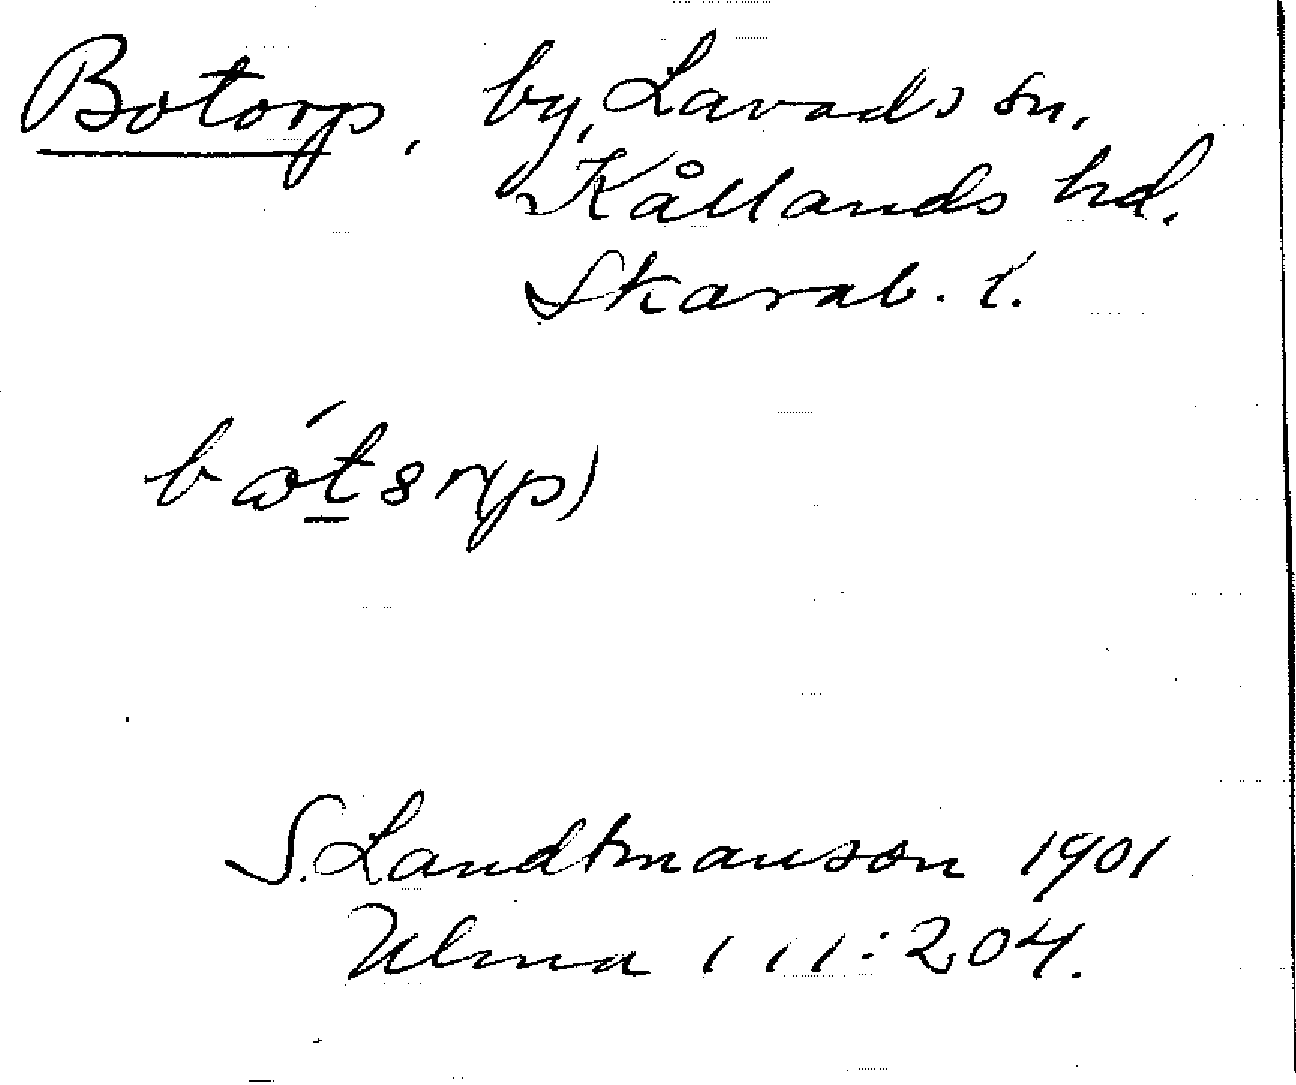 Botorp, by, Lavads sn,
Kållands hd.
Skarab. l.
S. Landtmanson 1901
Ulma 111:204.